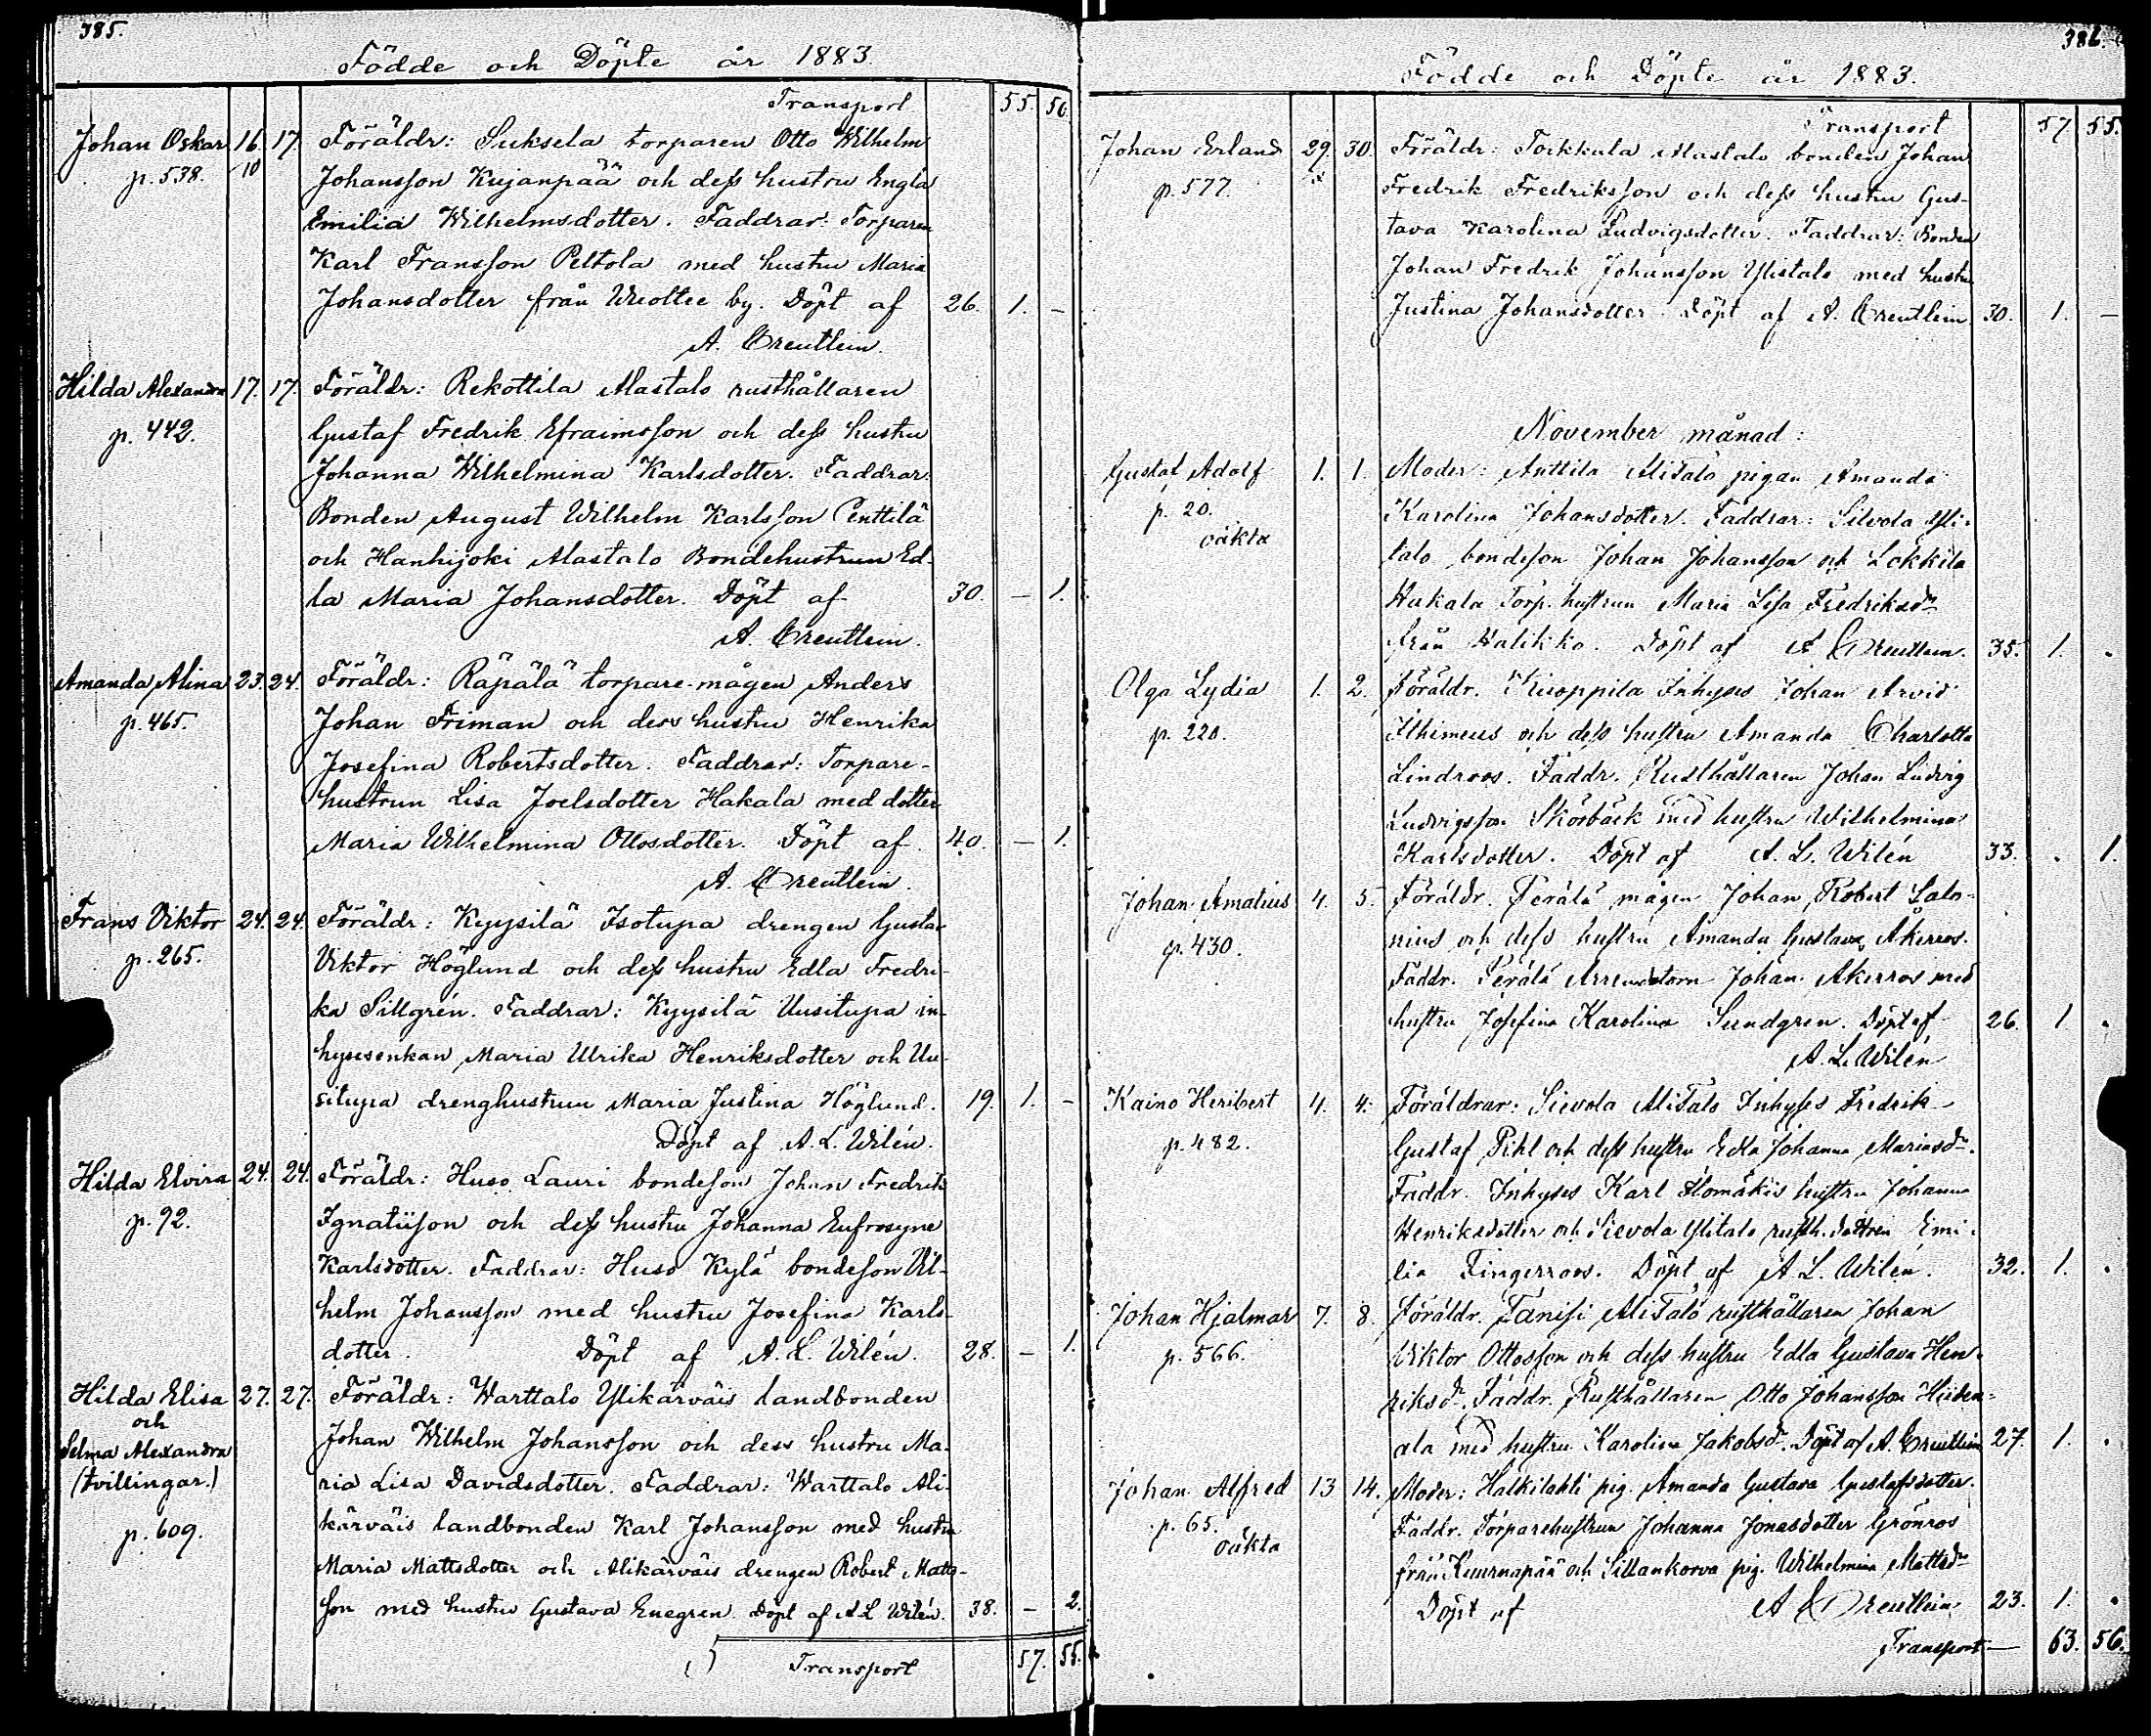 385.
Födde och Döpte år 1883.
Transport 55. 50.
Johan Oskar 16. 17. Föräldr: Suksela torparen Otto Wilhelm
p. 538. 10 Johansson Kujanpää och dess hustru Engla
Emilia Wilhelmsdotter. Faddrar: Torparen
Karl Fransson Peltola med hustru Maria
Johansdotter från by. Döpt af 26. 1. –
A. Creutlein.
Hilda Alexandra 17. 17. Föräldr: Rekottila Alastalo rusthållaren
p. 442. Gustaf Fredrik Efraimsson och dess hustru
Johanna Wilhelmina Karlsdotter. Faddrar:
Bonden August Wilhelm Karlsson Penttilä
och Hanhijoki Alastalo Bondehustrun Ed-
la Maria Johansdotter. Döpt af 30. – 1.
A. Creutlein.
Amanda Alina 23. 24. Föräldr: Räpälä torpare-mågen Anders
p. 465. Johan Friman och dess hustru Henrika
Josefina Robertsdotter. Faddrar: Torpare-
hustrun Lisa Joelsdotter Hakala med dotter
Maria Wilhelmina Ottosdotter. Döpt af 40. – 1.
A. Creutlein.
Frans Viktor 24. 24. Föräldr: Kyysilä Isotupa drengen Gustav
p. 265. Viktor Höglund och dess hustru Edla Fredri-
ka Sillgrén. Faddrar: Kyysilä Uusitupa in-
hysesenkan Maria Ulrika Henriksdotter och Uu-
situpa drenghustrun Maria Justina Höglund. 19. 1. –
Döpt af A. L. Wilén.
Hilda Elvira 24. 24. Föräldr: Huso Lauri bondeson Johan Fredrik
p. 92. Ignatiison och dess hustru Johanna Eufrosyne
Karlsdotter. Faddrar: Huso Kylä bondeson Vil-
helm Johansson med hustru Josefina Karls-
dotter. Döpt af A. L. Wilén. 28. – 1.
Hilda Elisa 27. 27. Föräldr: Warttalo Ylikärväis landbonden
och
Selma Alexandra Johan Wilhelm Johansson och dess hustru Ma-
(tvillingar.) ria Lisa Davidsdotter. Faddrar: Warttalo Ali-
p. 609. kärväis landbonden Karl Johansson med hustru
Maria Mattsdotter och Alikärväis drengen Robert Matts-
son med hustru Gustava Enegren. Döpt af A L Wilén. 38. – 2.
Transport 57. 55.
386.
Födde och Döpte år 1883.
Transport 57 55.
Johan Erland 29. 30. Föräldr: Torkkala Alastalo bonden Johan
p. 577. Fredrik Fredriksson och dess hustru Gus-
tava Karolina Ludvigsdotter. Faddrar: Bonden
Johan Fredrik Johansson Ylistalo med hustru
Justina Johansdotter. Döpt af A. Creutlein. 30. 1. –
November månad:
Gustaf Adolf 1. 1. Moder: Anttila AliTalo pigan Amanda
p. 20. Karolina Johansdotter. Faddrar: Sievola Yli-
oäkta talo bondeson Johan Johansson och Lokkila
Hakala Torp. hustrun Maria Lisa Fredriksdr
från Halikko. Döpt af A Creutlein. 35. 1. .
Olga Lydia 1. 2. Föräldr. Kuoppila Inhyses Johan Arvid
p. 220. och dess hustru Amanda Charlotta
Lindroos. Faddr. Rusthållaren Johan Ludvig
Ludvigsson Skörbäck med hustru Wilhelmina
Karlsdotter. Döpt af A. L. Wilén 33. . 1.
Johan Amatius 4. 5. Föräldr. Perälä mågen Johan Robert Salo-
p. 430. nius och dess hustru Amanda Gustava Åkerros.
Faddr. Perälä Arrendatorn Johan Åkerros med
hustru Josefina Karolina Sundgren. Döpt af 26. 1 .
A. L. Wilén
Kaino Heribert 4. 4. Föräldrar: Sievola AliTalo Inhyses Fredrik
p. 482. Gustaf Pihl och dess hustru Edla Johanna Mariasdr.
Faddr. Inhyses Karl Alomäkis hustru Johanna
Henriksdotter och Sievola Ylitalo rusth. dottren Emi-
lia Fingerroos. Döpt af A. L. Wilén. 32. 1. .
Johan Hjalmar 7. 8. Föräldr. Tanisi AliTalo rusthållaren Johan
p. 566. Viktor Ottosson och dess hustru Edla Gustava Hen-
riksdr. Faddr. Rusthållaren Otto Johansson Hiiden-
ala med hustru Karolina Jakobsdr. Döpt af A. Creutlein 27. 1. .
Johan Alfred 13 14. Moder: Halkilahti pig. Amanda Gustava Gustafsdotter.
p. 65. Faddr. Torparehustrun Johanna Jonasdotter Grönros
oäkta från Kuurnapää och Sillankorva pig. Wilhelmina Mattsdr
Döpt af A Creutlein 23. 1. .
Transport – 63. 56.